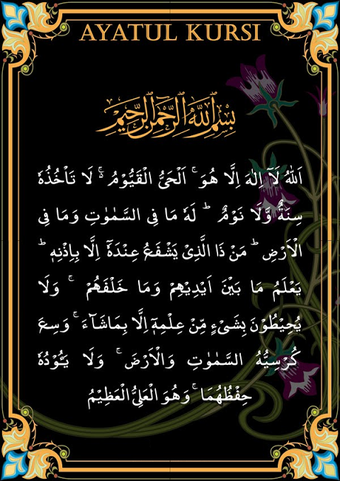 AYATUL KURSI
بِسْمِ اللّٰهِ الرَّحْمٰنِ الرَّحِيْمِ
اَللّٰهُ لَآ اِلٰهَ اِلَّا هُوَ ۚ اَلْحَيُّ الْقَيُّوْمُ ۚ۬ لَا تَاْخُذُهٗ
سِنَةٌ وَّلَا نَوْمٌ ؕ لَهٗ مَا فِى السَّمٰوٰتِ وَمَا فِى
الْاَرْضِ ؕ مَنْ ذَا الَّذِىْ يَشْفَعُ عِنْدَهٗۤ اِلَّا بِاِذْنِهٖ ؕ
يَعْلَمُ مَا بَيْنَ اَيْدِيْهِمْ وَمَا خَلْفَهُمْ ۚ وَلَا
يُحِيْطُوْنَ بِشَىْءٍ مِّنْ عِلْمِهٖۤ اِلَّا بِمَاشَآءَ ۚ وَسِعَ
كُرْسِيُّهُ السَّمٰوٰتِ وَالْاَرْضَ ۚ وَلَا يَـُٔوْدُهٗ
حِفْظُهُمَا ۚ وَهُوَ الْعَلِىُّ الْعَظِيْمُ